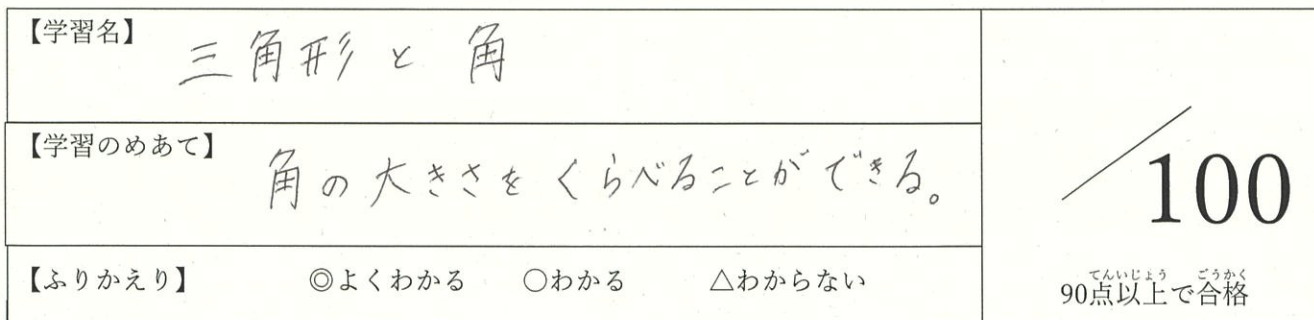 【学習名】 三角形と角
【学習のめあて】 角の大きさをくらべることができる。
【ふりかえり】 ◎よくわかる ○わかる △わからない
/100
てんいじょう ごうかく
90点以上で合格